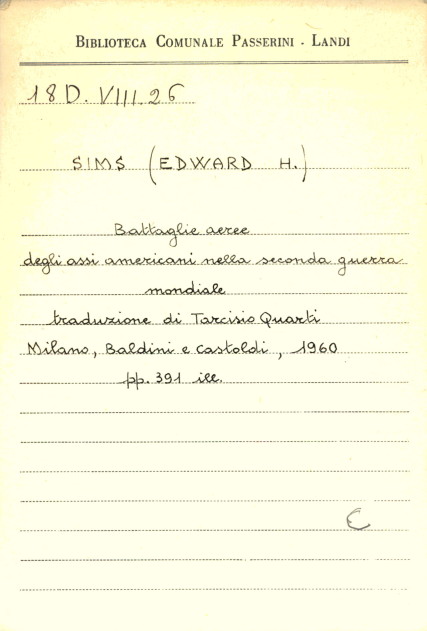 BIBLIOTECA COMUNALE PASSERINI - LANDI
18 D. VIII. 26
SIMS (EDWARD H.)
Battaglie aeree
degli assi americani nella seconda guerra
mondiale
traduzione di Tarcisio Quarti
Milano, Baldini e Castoldi, 1960
pp. 391 ill.
C